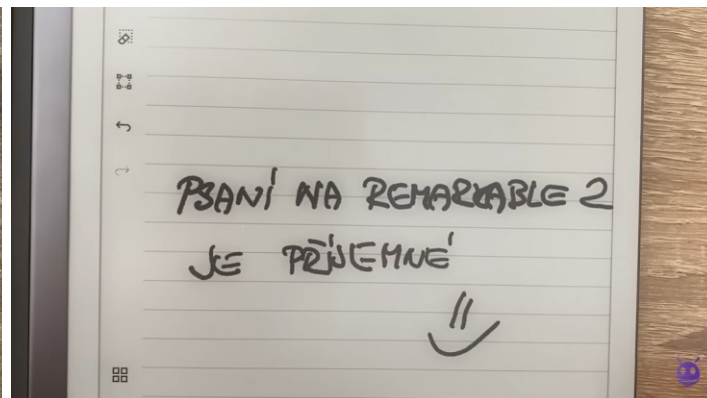 PSANÍ NA REMARKABLE 2
JE PŘÍJEMNÉ